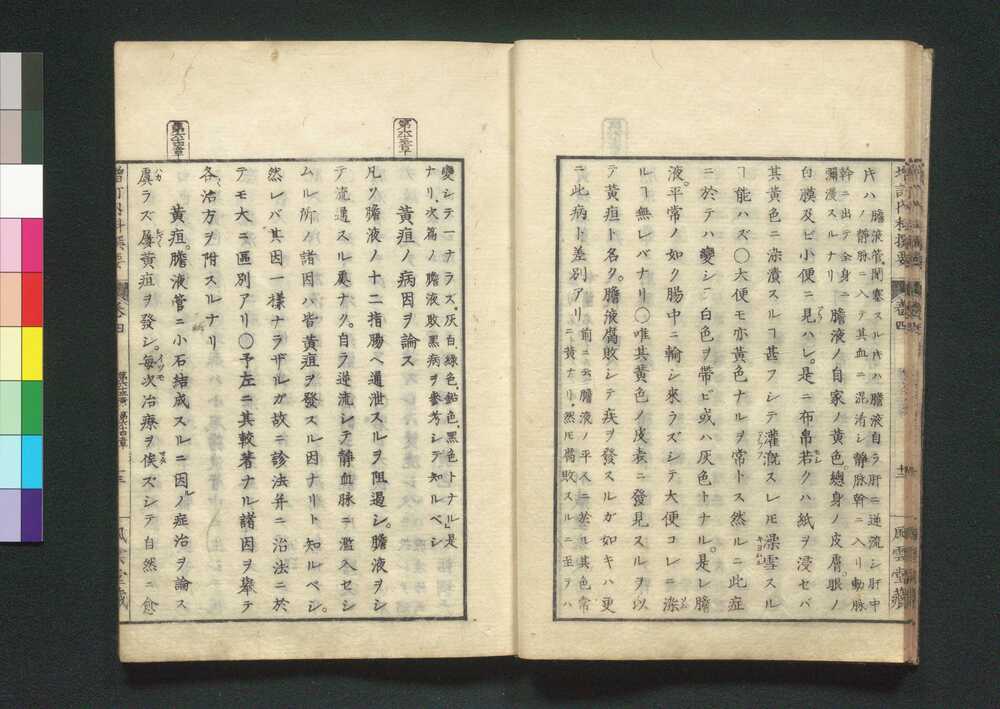 増訂内科撰要 巻四 十二 風雲堂蔵
片ハ 膽液管閉塞スル片ハ膽液自ラ肝ニ逆流シ肝中
ノ静脉ニ入テ其血ニ混淆シ静脉幹ニ入リ動脉
幹ニ出テ全身ニ
彌漫スルナリ 膽液ノ自家ノ黄色。總身ノ皮膚眼ノ
白膜及ビ小便ニ見ハレ。是ニ布帛若クハ紙ヲ浸セバ
其黄色ニ染漬スルヿ甚フシテ灌漑スレ𪜈澡雪スル
ヿ能ハズ〇大便モ亦黄色ナルヲ常トス然ルニ此症
ニ於テハ變シテ白色ヲ帶ビ或ハ灰色トナル。是レ膽
液。平常ノ如ク腸中ニ輸シ來ラズシテ大便コレニ染
ルヿ無レバナリ〇唯其黄色ノ皮表ニ發見スルヲ以
テ黄疸ト名ク。膽液腐敗シテ疾ヲ發スルガ如キハ更
ニ此病ト差別アリ 前ニ云膽液ノ平人ニ於ル其色常
ニ黄ナリ.然𪜈腐敗スルニ至テハ
第六十三章
變シテ一ナラズ.灰白.綠色.鉛色.黒色トナル」是
ナリ.次篇ノ膽液敗黒病ヲ參考シテ知ルベシ
黄疸ノ病因ヲ論ス
凡ソ膽液ノ十二指腸ヘ通泄スルヲ阻遏シ。膽液ヲシ
テ流通スル處ナク。自ラ逆流シテ静血脉ニ濫入セシ
ムル所ノ諸因ハ皆黄疸ヲ發スル因ナリト知ルベシ。
然レバ其因一様ナラザルガ故ニ診法并ニ治法ニ於
テモ大ニ區別アリ〇予左ニ其較著ナル諸因ヲ舉テ
各治方ヲ附スルナリ
第六十四章
黄疸。膽液管ニ小石結成スルニ因ル症治ヲ論ス
虞ラズ屢黄疸ヲ發シ。毎次治療ヲ俟ズシテ自然ニ愈
増訂内科撰要 巻四 第六十三章 第六十四章 十三 風雲堂蔵